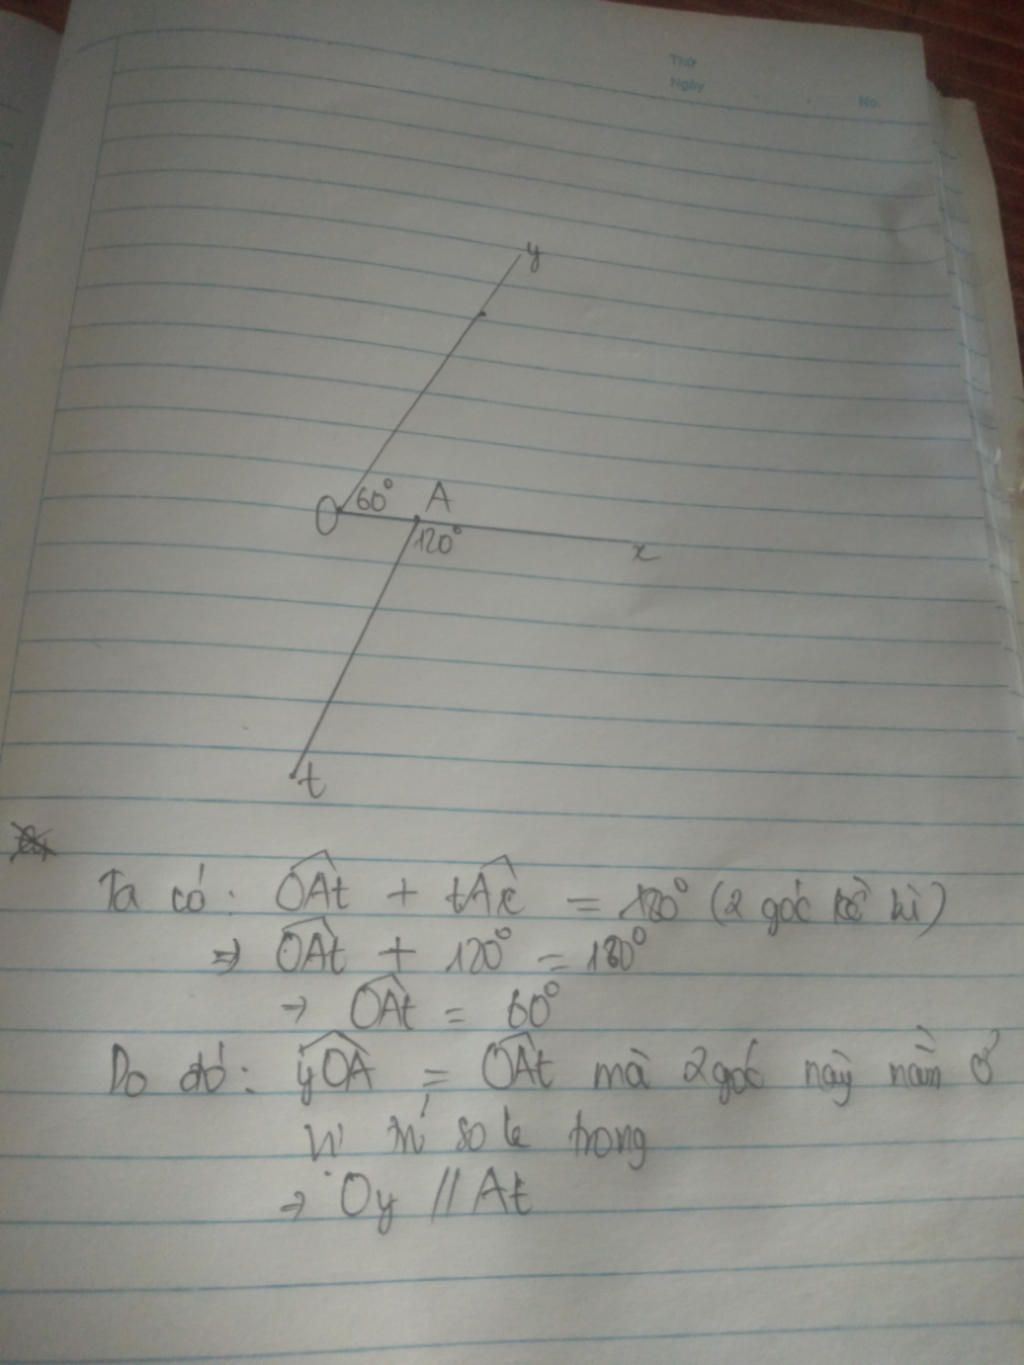 Thứ
Ngày
No.
y
O 60° A
120°
x
t
Ta có: OAt + tAx = 180° (2 góc kề bù)
=> OAt + 120° = 180°
-> OAt = 60°
Do đó: yOA = OAt mà 2 góc này nằm ở
vị trí so le trong
-> Oy // At